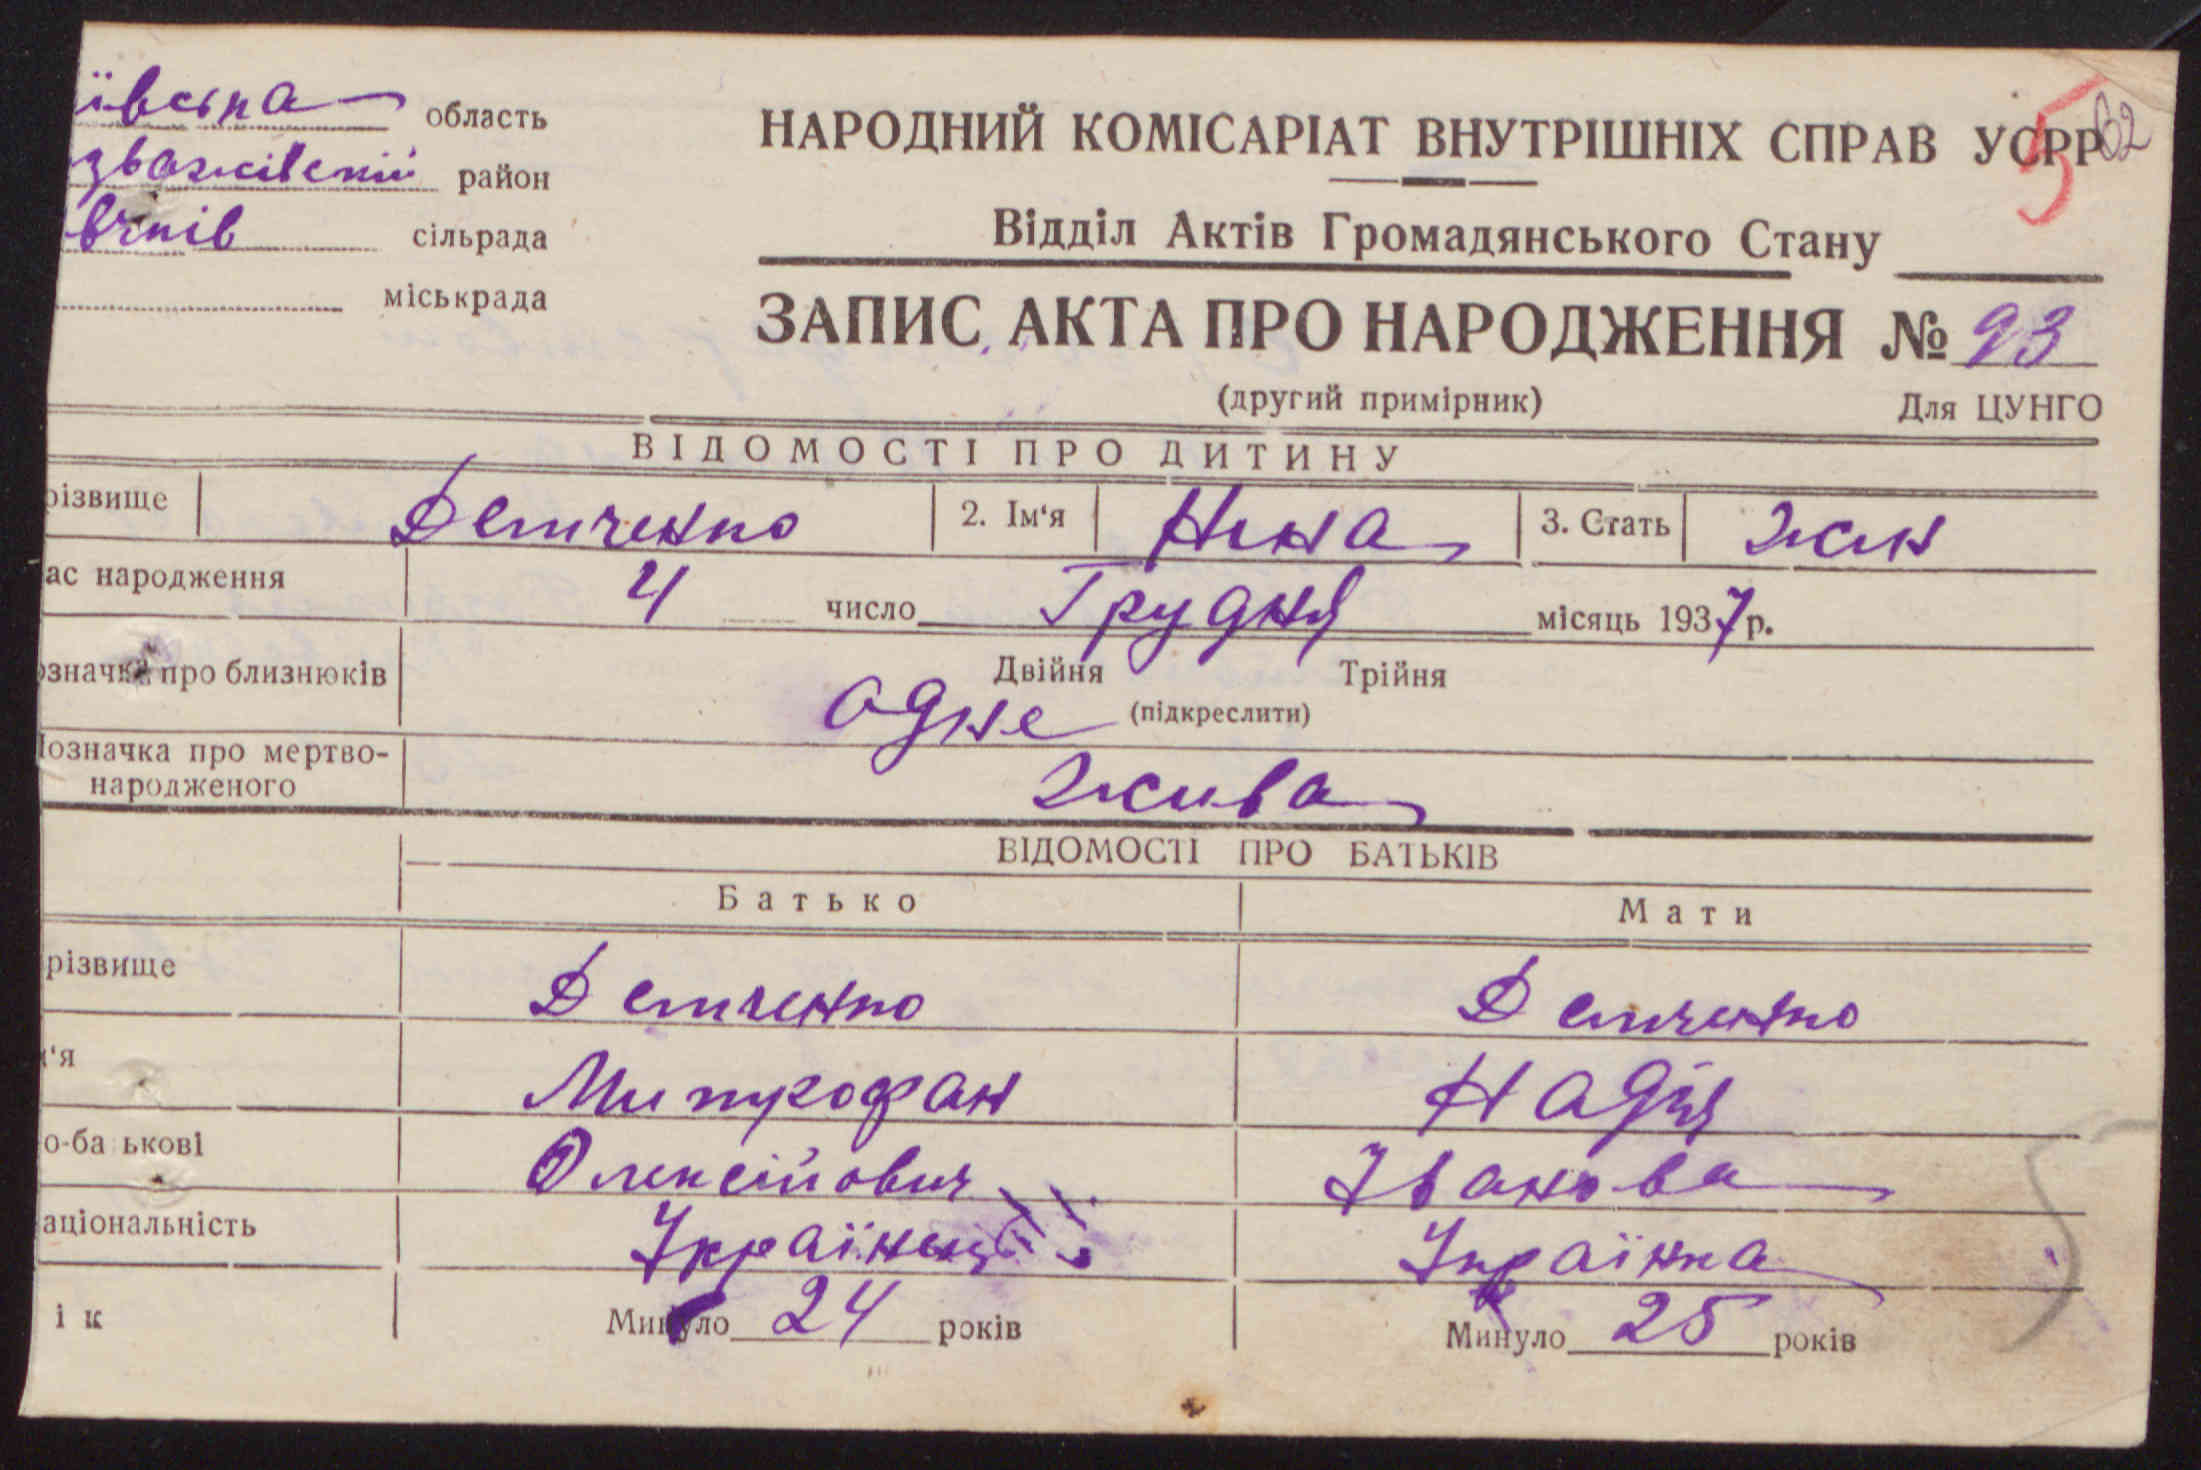 ївська область
зважівський район
вчків сільрада
міськрада
5 62
НАРОДНИЙ КОМІСАРІАТ ВНУТРІШНІХ СПРАВ УСРР
Відділ Актів Громадянського Стану
ЗАПИС АКТА ПРО НАРОДЖЕННЯ № 93
(другий примірник) Для ЦУНГО
ВІДОМОСТІ ПРО ДИТИНУ
різвище Детченко 2. Ім‘я Нина 3. Стать жин
ас народження 4 число Грудня місяць 1937 р.
означка про близнюків Двійня Трійня
одне (підкреслити)
Позначка про мертво-
народженого жива
ВІДОМОСТІ ПРО БАТЬКІВ
Батько Мати
різвище Детченко Детченко
‘я Митрофан Надія
о-ба ькові Олексійович Іванова
аціональність Українец Українка
ік Минуло 24 років Минуло 25 років